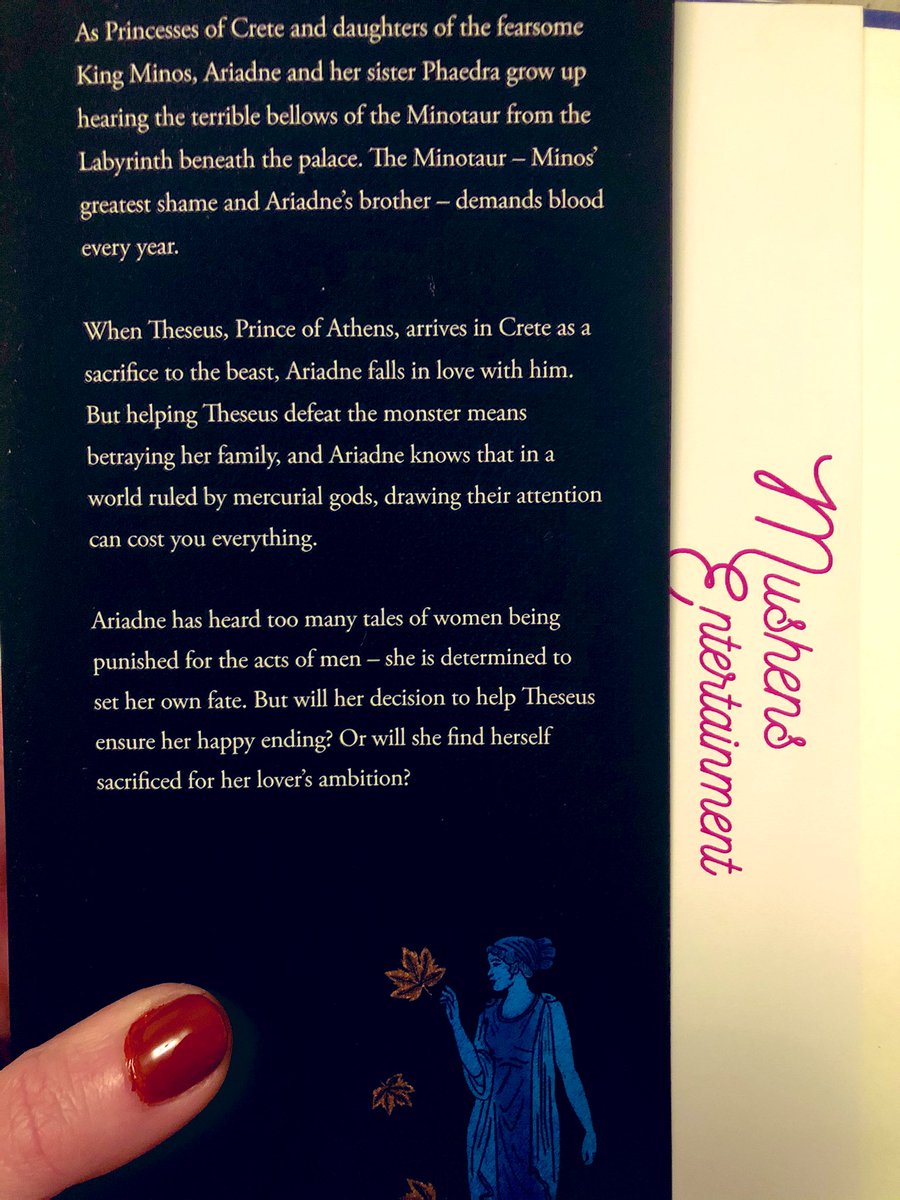 As Princesses of Crete and daughters of the fearsome
King Minos, Ariadne and her sister Phaedra grow up
hearing the terrible bellows of the Minotaur from the
Labyrinth beneath the palace. The Minotaur – Minos’
greatest shame and Ariadne’s brother – demands blood
every year.
When Theseus, Prince of Athens, arrives in Crete as a
sacrifice to the beast, Ariadne falls in love with him.
But helping Theseus defeat the monster means
betraying her family, and Ariadne knows that in a
world ruled by mercurial gods, drawing their attention
can cost you everything.
Ariadne has heard too many tales of women being
punished for the acts of men – she is determined to
set her own fate. But will her decision to help Theseus
ensure her happy ending? Or will she find herself
sacrificed for her lover’s ambition?
Mushens
Entertainment